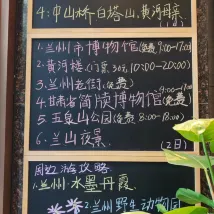 4:中山桥白塔山,黄河母亲
1.兰州市博物馆(免费9:00-17:00)
2.黄河楼(门票30元,10:00-20:00)
3.兰州老街(免费)
4.甘肃省简牍博物馆(免费9:00-17:00)
5.五泉山公园(免费8:00-18:00)
6.兰山夜景
(2日)
周边游攻略
1.兰州水墨丹霞
2.兰州野生动物园